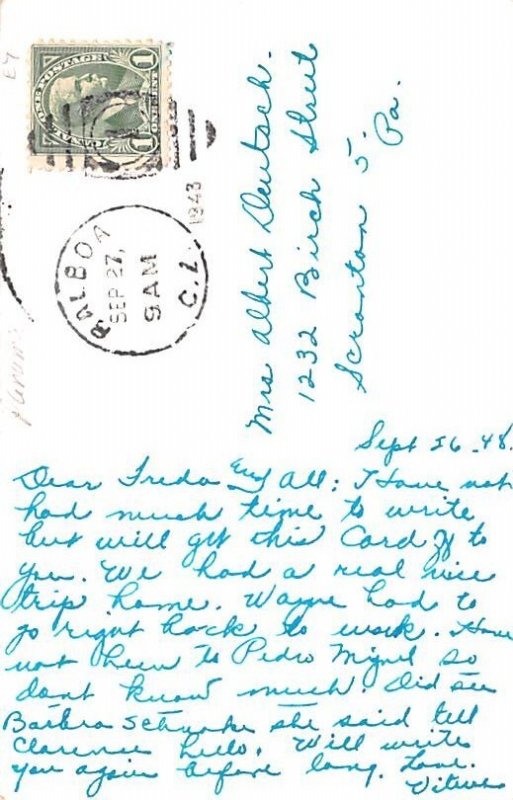 CANAL ZONE POSTAGE
1
1
BALBOA
SEP 27,
9 AM
C.Z.
1943
E7
Mrs Albert Deutsch.
1232 Birch Street
Scranton 5.
Pa.
Sept 26-48.
Dear Freda and All: I Have not
had much time to write
but will get this Card off to
you. We had a real nice
trip home. Wayne had to
go right back to work. Have
not been to Pedro Miguel so
dont know much. Did see
Barbra she said tell
Clarence hello. Will write
you again before long. Love.